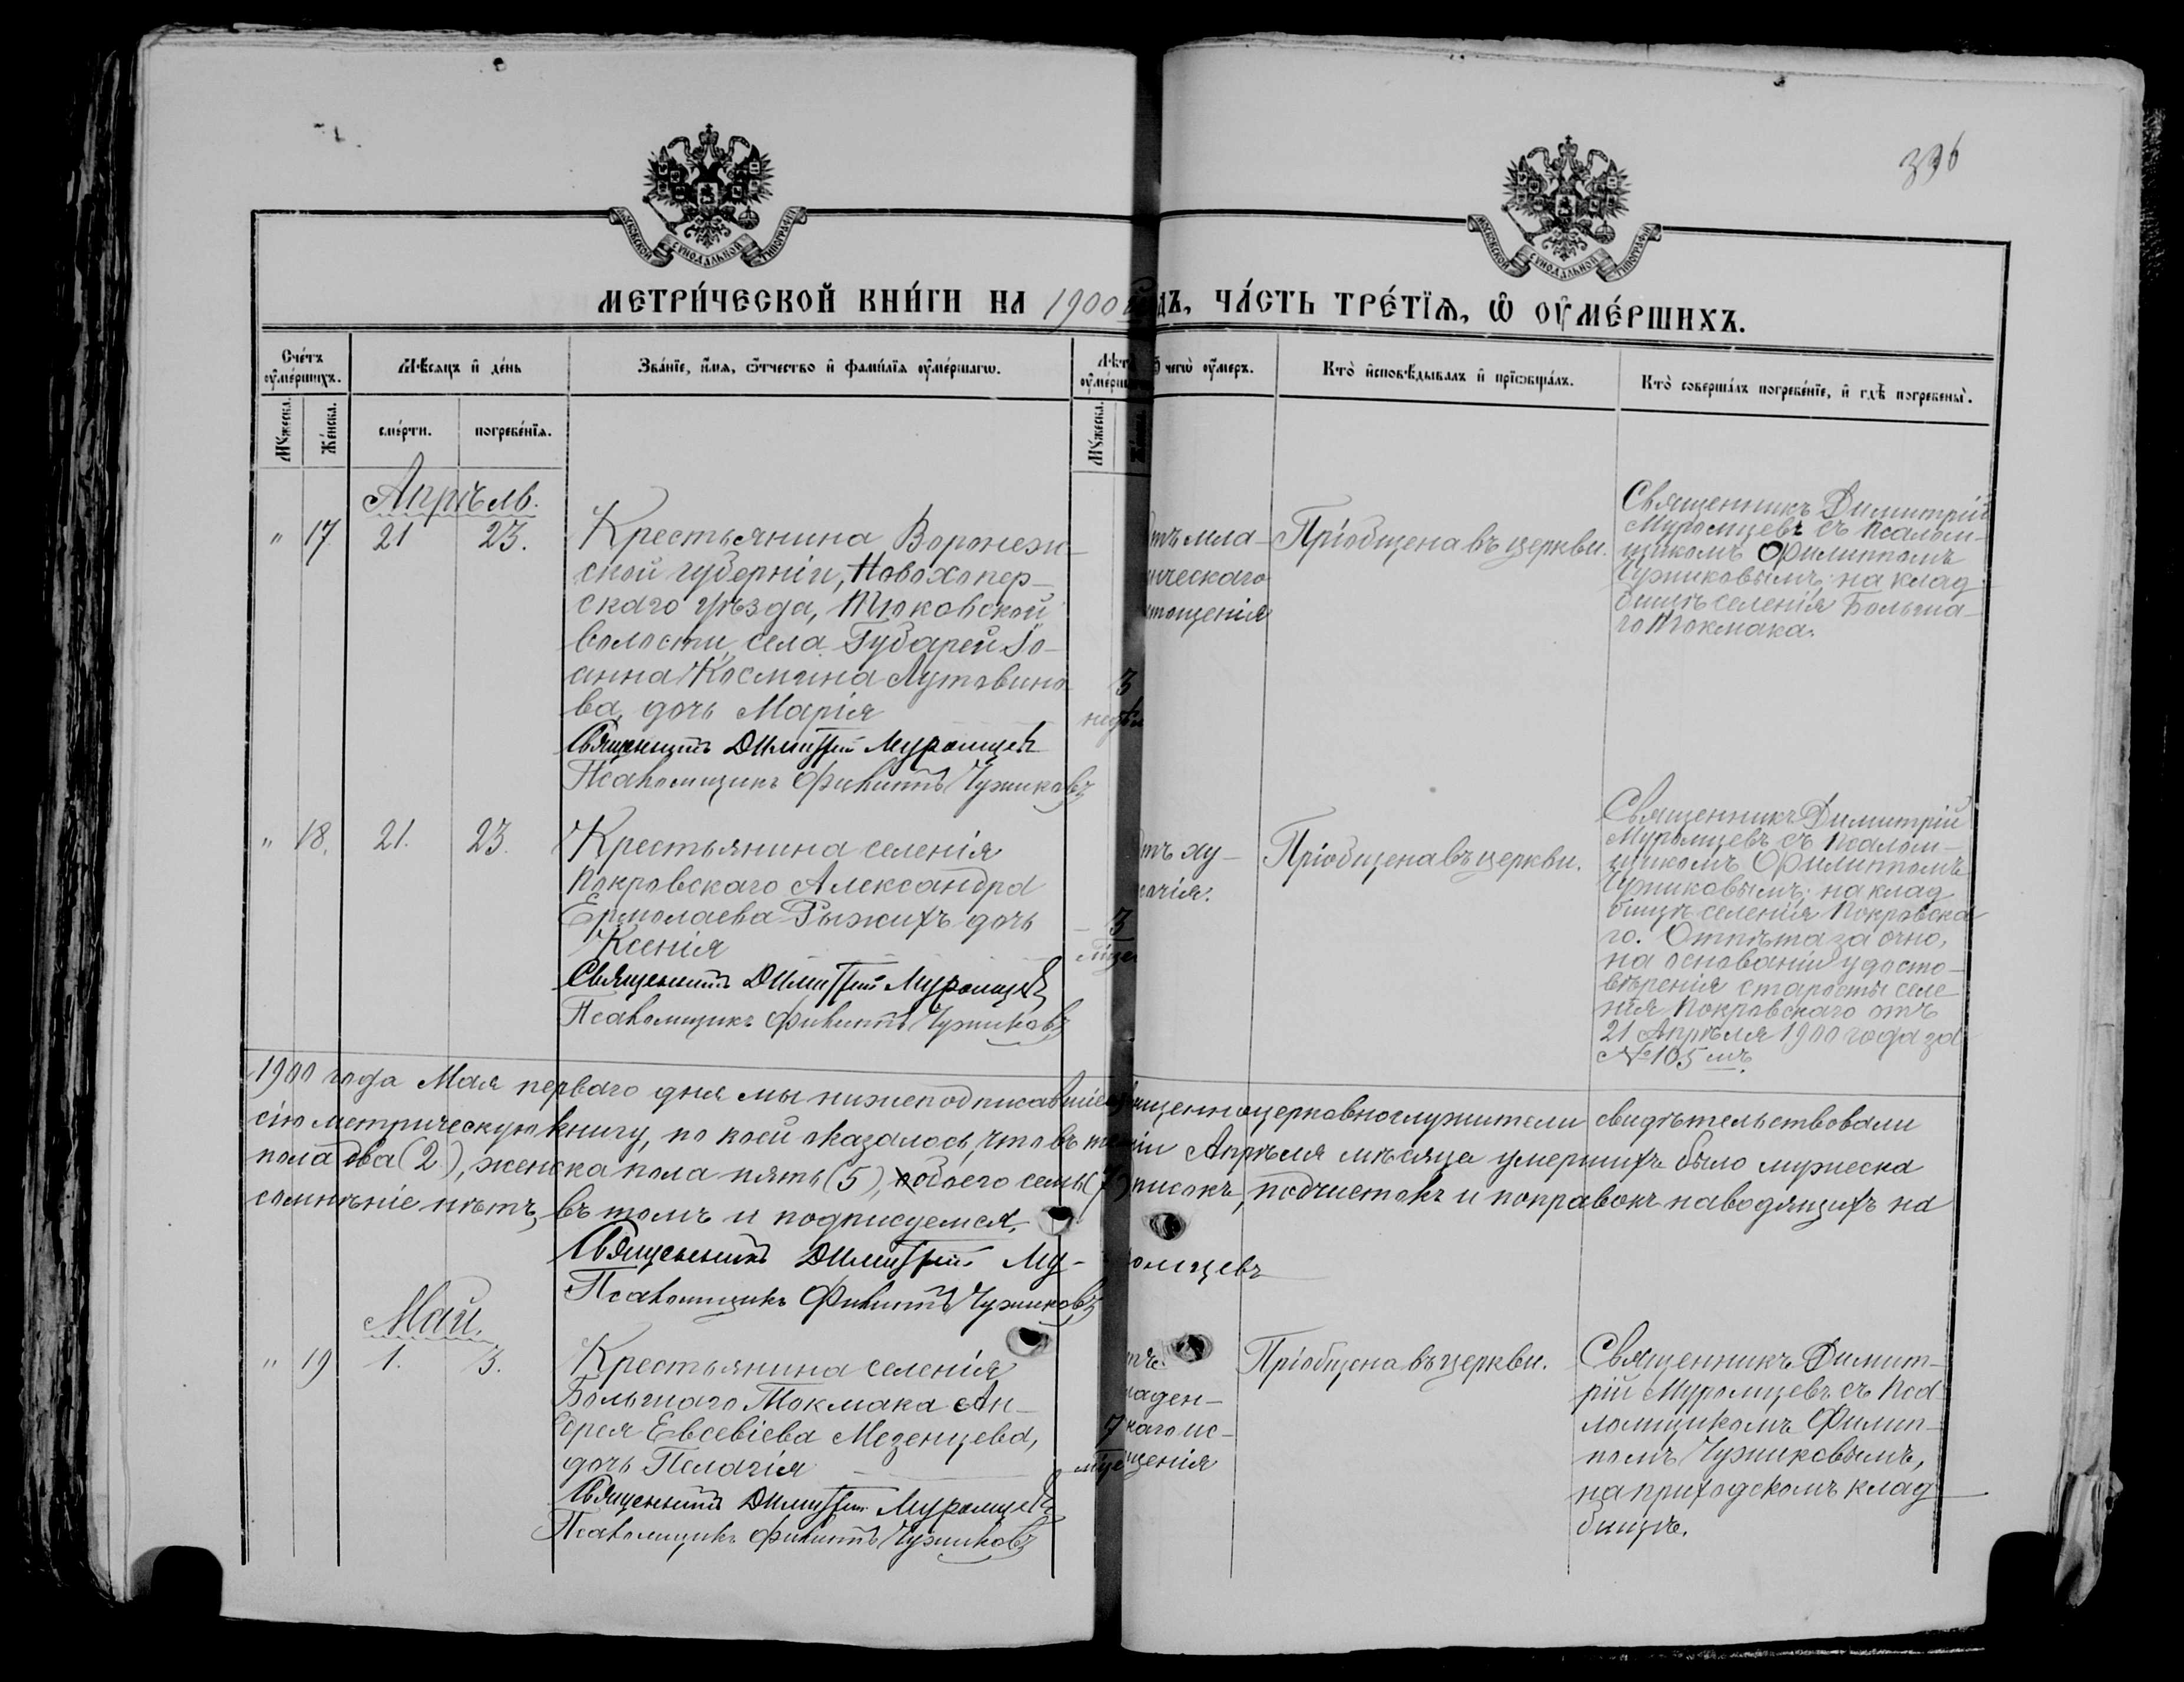 336
МОСКОВСКОЙ СѴНОДАЛЬНОЙ ТИПОГРАФІИ
МОСКОВСКОЙ СѴНОДАЛЬНОЙ ТИПОГРАФІИ
МЕТРИ́ЧЕСКОЙ КНИ́ГИ НА 1900 дъ, ЧА́СТЬ ТРЕ́ТЇѦ, Ѡ҆ ОУ҆МЕ́РШИХЪ.
Сче́тъ оу҆ме́ршихъ.
Мѣ́сяцъ и҆ де́нь
Зва́нїе, и҆́мѧ, ѻ҆́тчество и҆ фами́лїѧ оу҆ме́ршагѡ.
Лѣт оу҆ме́рш
чегѡ̀ оу҆́меръ.
Кто̀ и҆сповѣ́дывалъ и҆ прїѡбща́лъ.
Кто̀ соверша́лъ погребе́нїе, и҆ гдѣ̀ погребены̀.
Мꙋ́жеска.
Же́нска.
сме́рти.
погребе́нїѧ.
Мꙋ́жеска.
Апрѣль.
" 17 21 23.
Крестьянина Воронеж-
ской губерніи, Новохопер-
скаго уѣзда, Тюковской
волости, села Губарей Іо-
анна Космина Лутовино-
ва, дочь Марія
3
недѣл
Священникъ Димитрій Муромцевъ
Псаломщикъ Филиппъ Чужиковъ
тъ мла-
ческаго
тощенія
Пріобщена въ церкви.
Священникъ Димитрій
Муромцевъ съ псалом-
щикомъ Филиппомъ
Чужиковымъ; на клад-
бищѣ селенія Больша-
го Токмака.
" 18. 21. 23.
Крестьянина селенія
Покровскаго Александра
Ермолаева Рыжихъ дочь
Ксенія
3
мѣсе
Священникъ Димитрій Муромцевъ
Псаломщикъ Филиппъ Чужиковъ
тъ ху-
сочія.
Пріобщена въ церкви.
Священникъ Димитрій
Муромцевъ съ псалом-
щикомъ Филиппомъ
Чужиковымъ; на клад-
бищѣ селенія Покровска-
го. Отпѣта заочно,
на основаніи удосто-
вѣренія старосты селе-
нія Покровскаго отъ
21 Апрѣля 1900 года за
№ 105 мъ.
1900 года Мая перваго дня мы нижеподписавшіеся щенноцерковнослужители свидѣтельствовали
сію метрическую книгу, по коей оказалось, что въ теченіи Апрѣля мѣсяца умершихъ было мужеска
пола два (2), женска пола пять (5), обоего семь (7) писокъ, подчистокъ и поправокъ наводящихъ на
сомнѣніе нѣтъ, въ томъ и подписуемся.
Священникъ Димитрій Му-ромцевъ
Псаломщикъ Филиппъ Чужиковъ
Май.
" 19 1. 3.
Крестьянина селенія
Большаго Токмака Ан-
дрея Евсевіева Мезенцева,
дочь Пелагія
7
мѣсе
Священникъ Димитрій Муромцевъ
Псаломщикъ Филиппъ Чужиковъ
тъ
аден-
каго ис-
щенія
Пріобщена въ церкви.
Священникъ Димит-
рій Муромцевъ съ Пса-
ломщикомъ Филип-
помъ Чужиковымъ,
на приходскомъ клад-
бищѣ.